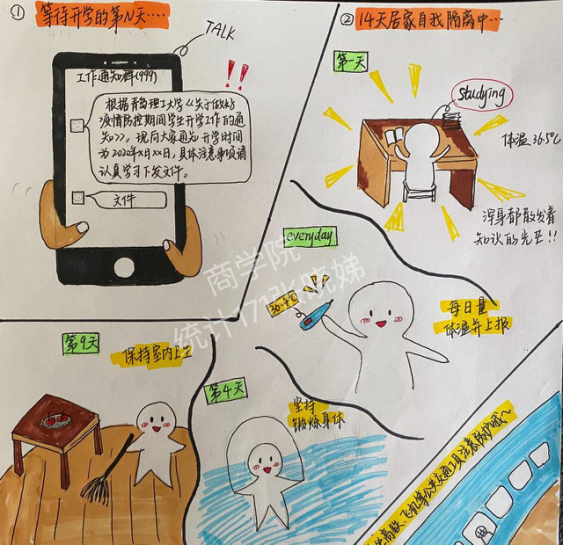 ① 等待开学的第N天……
TALK
工作通知群(999)
!!
根据青岛理工大学《关于做好
疫情防控期间学生开学工作的通
知》，现向大家通知开学时间
为2020年X月XX日，具体注意事项请
认真学习下发文件。
文件
② 14天居家自我隔离中…
第一天
studying
体温36.5℃
浑身都散发着
知识的光芒!!
everyday
36.4℃
每日量
体温并上报
第4天
坚持
锻炼身体
第9天
保持室内卫生
坐高铁、飞机等公共交通工具注意防护哦~
商学院
统计171张晓娣